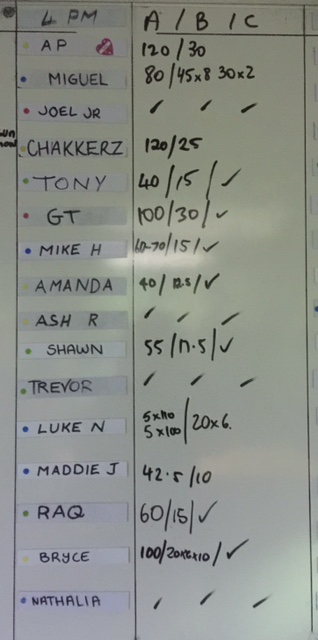 4 PM A / B / C
AP 120/30
MIGUEL 80/45x8 30x2
JOEL JR / / /
CHAKKERZ 120/25
TONY 40/15/✓
GT 100/30/✓
MIKE H 60-70/15/✓
AMANDA 40/12.5/✓
ASH R / / /
SHAWN 55/17.5/✓
TREVOR / / /
LUKE N 5x110 5x100/20x6.
MADDIE J 42.5/10
RAQ 60/15/✓
BRYCE 100/20x6x10/✓
NATHALIA / / /